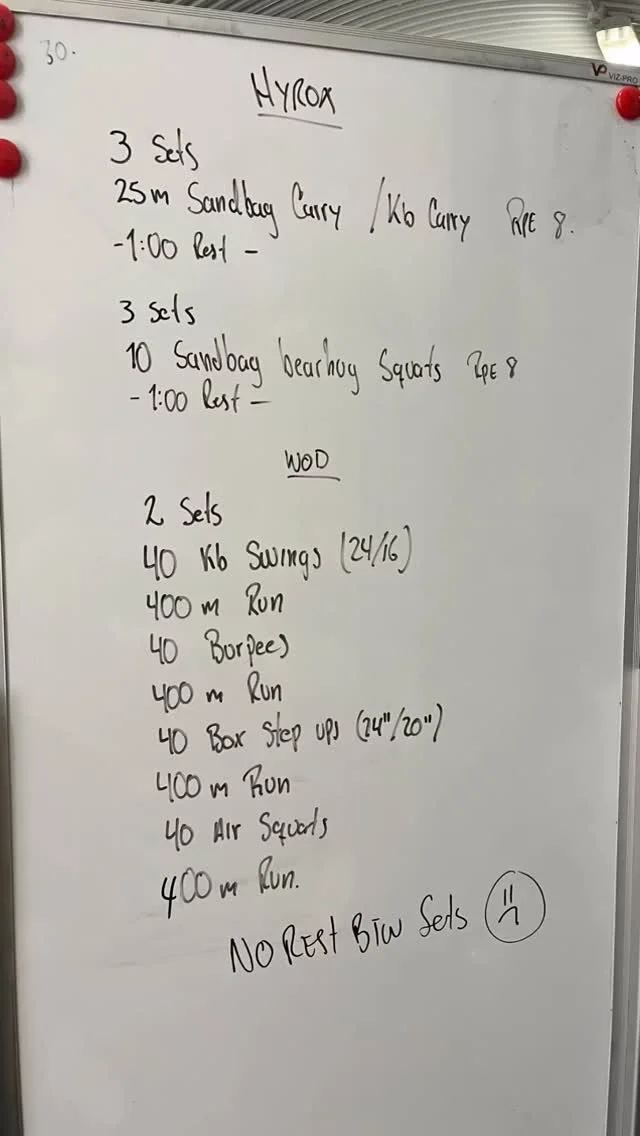 30.
VP VIZ-PRO
HYROX
3 Sets
25m Sandbag Carry / Kb Carry RPE 8.
-1:00 Rest -
3 sets
10 Sandbag bearhug Squats RPE 8
- 1:00 Rest -
WOD
2 Sets
40 Kb Swings (24/16)
400 m Run
40 Burpees
400 m Run
40 Box Step ups (24"/20")
400 m Run
40 Air Squats
400 m Run.
NO REST BTW Sets